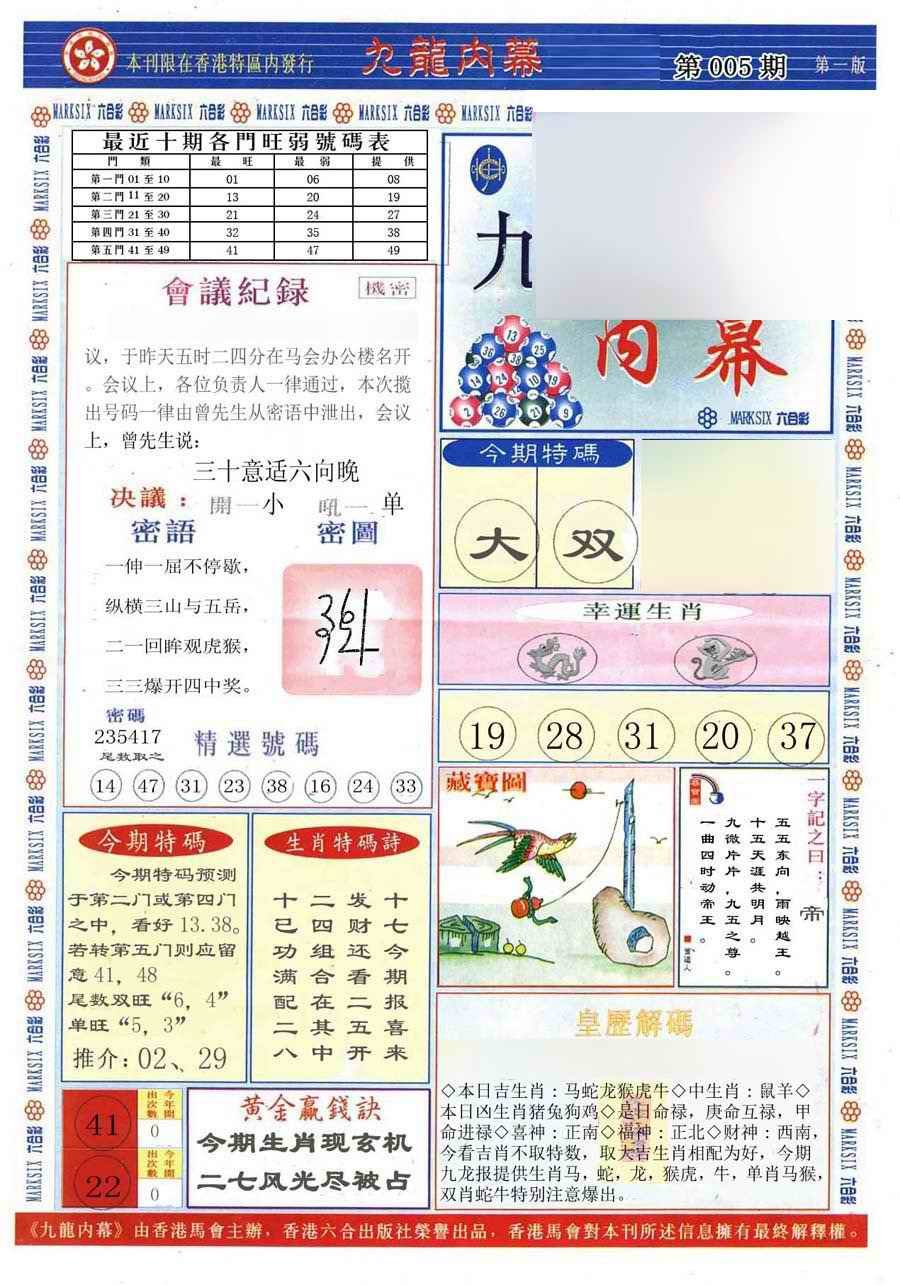 本刊限在香港特區内發行
九龍内幕
第 005 期
第一版
MARKSIX 六合彩 MARKSIX 六合彩 MARKSIX 六合彩 MARKSIX 六合彩 MARKSIX 六合彩
最近十期各門旺弱號碼表
門 類 最 旺 最 弱 提 供
第一門 01 至 10 01 06 08
第二門 11 至 20 13 20 19
第三門 21 至 30 21 24 27
第四門 31 至 40 32 35 38
第五門 41 至 49 41 47 49
會議紀録
機密
议，于昨天五时二四分在马会办公楼名开
。会议上，各位负责人一律通过，本次揽
出号码一律由曾先生从密语中泄出，会议
上，曾先生说：
三十意适六向晚
决議： 開一小 吼一 单
密語 密圖
一伸一屈不停歇，
纵横三山与五岳，
二一回眸观虎猴，
三三爆开四中奖。
密碼
235417
尾数取之
精選號碼
14 47 31 23 38 16 24 33
九
内幕
13
36 38 25
12 24 10 19
2 26 21 9
MARKSIX 六合彩
今期特碼
大 双
幸運生肖
19 28 31 20 37
藏寶圖
一字記之曰：帝
五五东向，雨映越王。
十五天涯共明月。
九微片片，九五之尊。
一曲四时动帝王。
今期特碼
今期特码预测
于第二门或第四门
之中，看好 13.38。
若转第五门则应留
意 41，48
尾数双旺“6，4”
单旺“5，3”
推介：02、29
生肖特碼詩
十七今期报喜来
发财还看二五开
二四组合在其中
十已功满配二八
41
今年開出次數
0
22
今年開出次數
0
黄金贏錢訣
今期生肖现玄机
二七风光尽被占
皇歷解碼
◇本日吉生肖：马蛇龙猴虎牛◇中生肖：鼠羊◇
本日凶生肖猪兔狗鸡◇是日命禄，庚命互禄，甲
命进禄◇喜神：正南◇福神：正北◇财神：西南，
今看吉肖不取特数，取大吉生肖相配为好，今期
九龙报提供生肖马，蛇，龙，猴虎，牛，单肖马猴，
双肖蛇牛特别注意爆出。
《九龍内幕》由香港馬會主辦，香港六合出版社榮譽出品，香港馬會對本刊所述信息擁有最終解釋權。